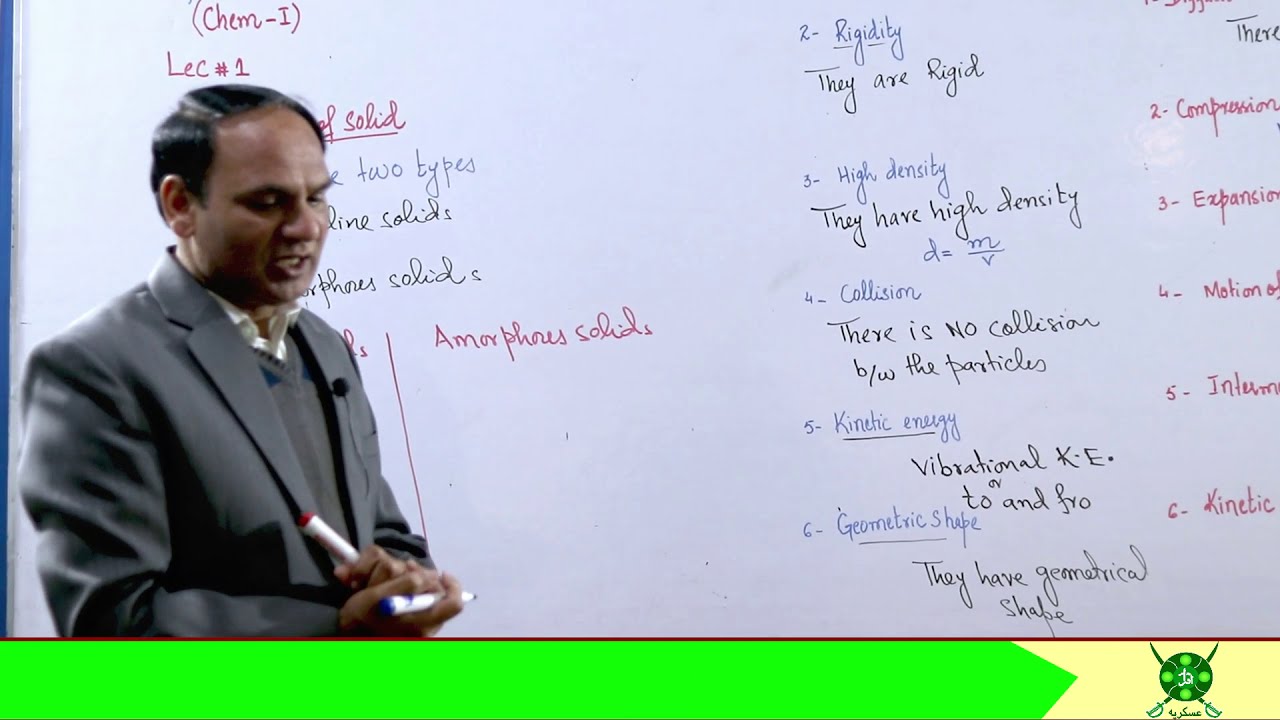 (Chem-I)
Lec # 1
of solid
two types
line solids
phores solids
Amorphores solids
2- Rigidity
They are Rigid
3- High density
They have high density
d= m/v
4- Collision
There is NO collision
b/w the particles
5- Kinetic energy
Vibrational K.E.
or
to and fro
6- Geometric shape
They have geometrical
shape
There
2- Compression
3- Expansion
4- Motion of
5- Interm
6- Kinetic
عسکریہ